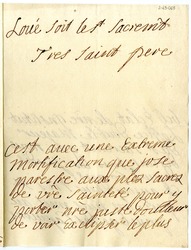 Loué soit le st sacremt
Tres saint pere
cest avec une Extreme
mortification que jose
parestre aux pies sacres
de vre sainteté pour y
porter nre juste douleur
de voir Eclipser le plus